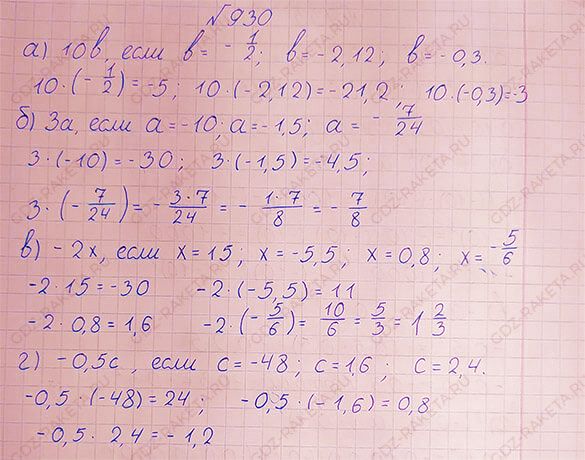 №930
а) 10в, если в = -1/2; в = -2,12; в = -0,3.
10·(-1/2) = -5; 10·(-2,12) = -21,2; 10·(-0,3) = -3
б) 3а, если а = -10; а = -1,5; а = -7/24
3·(-10) = -30; 3·(-1,5) = -4,5;
3·(-7/24) = -3·7/24 = -1·7/8 = -7/8
в) -2х, если х = 15; х = -5,5; х = 0,8; х = -5/6
-2·15 = -30 -2·(-5,5) = 11
-2·0,8 = 1,6 -2·(-5/6) = 10/6 = 5/3 = 1 2/3
г) -0,5с, если с = -48; с = 1,6; с = 2,4.
-0,5·(-48) = 24; -0,5·(-1,6) = 0,8
-0,5·2,4 = -1,2
GDZ-RAKETA.RU